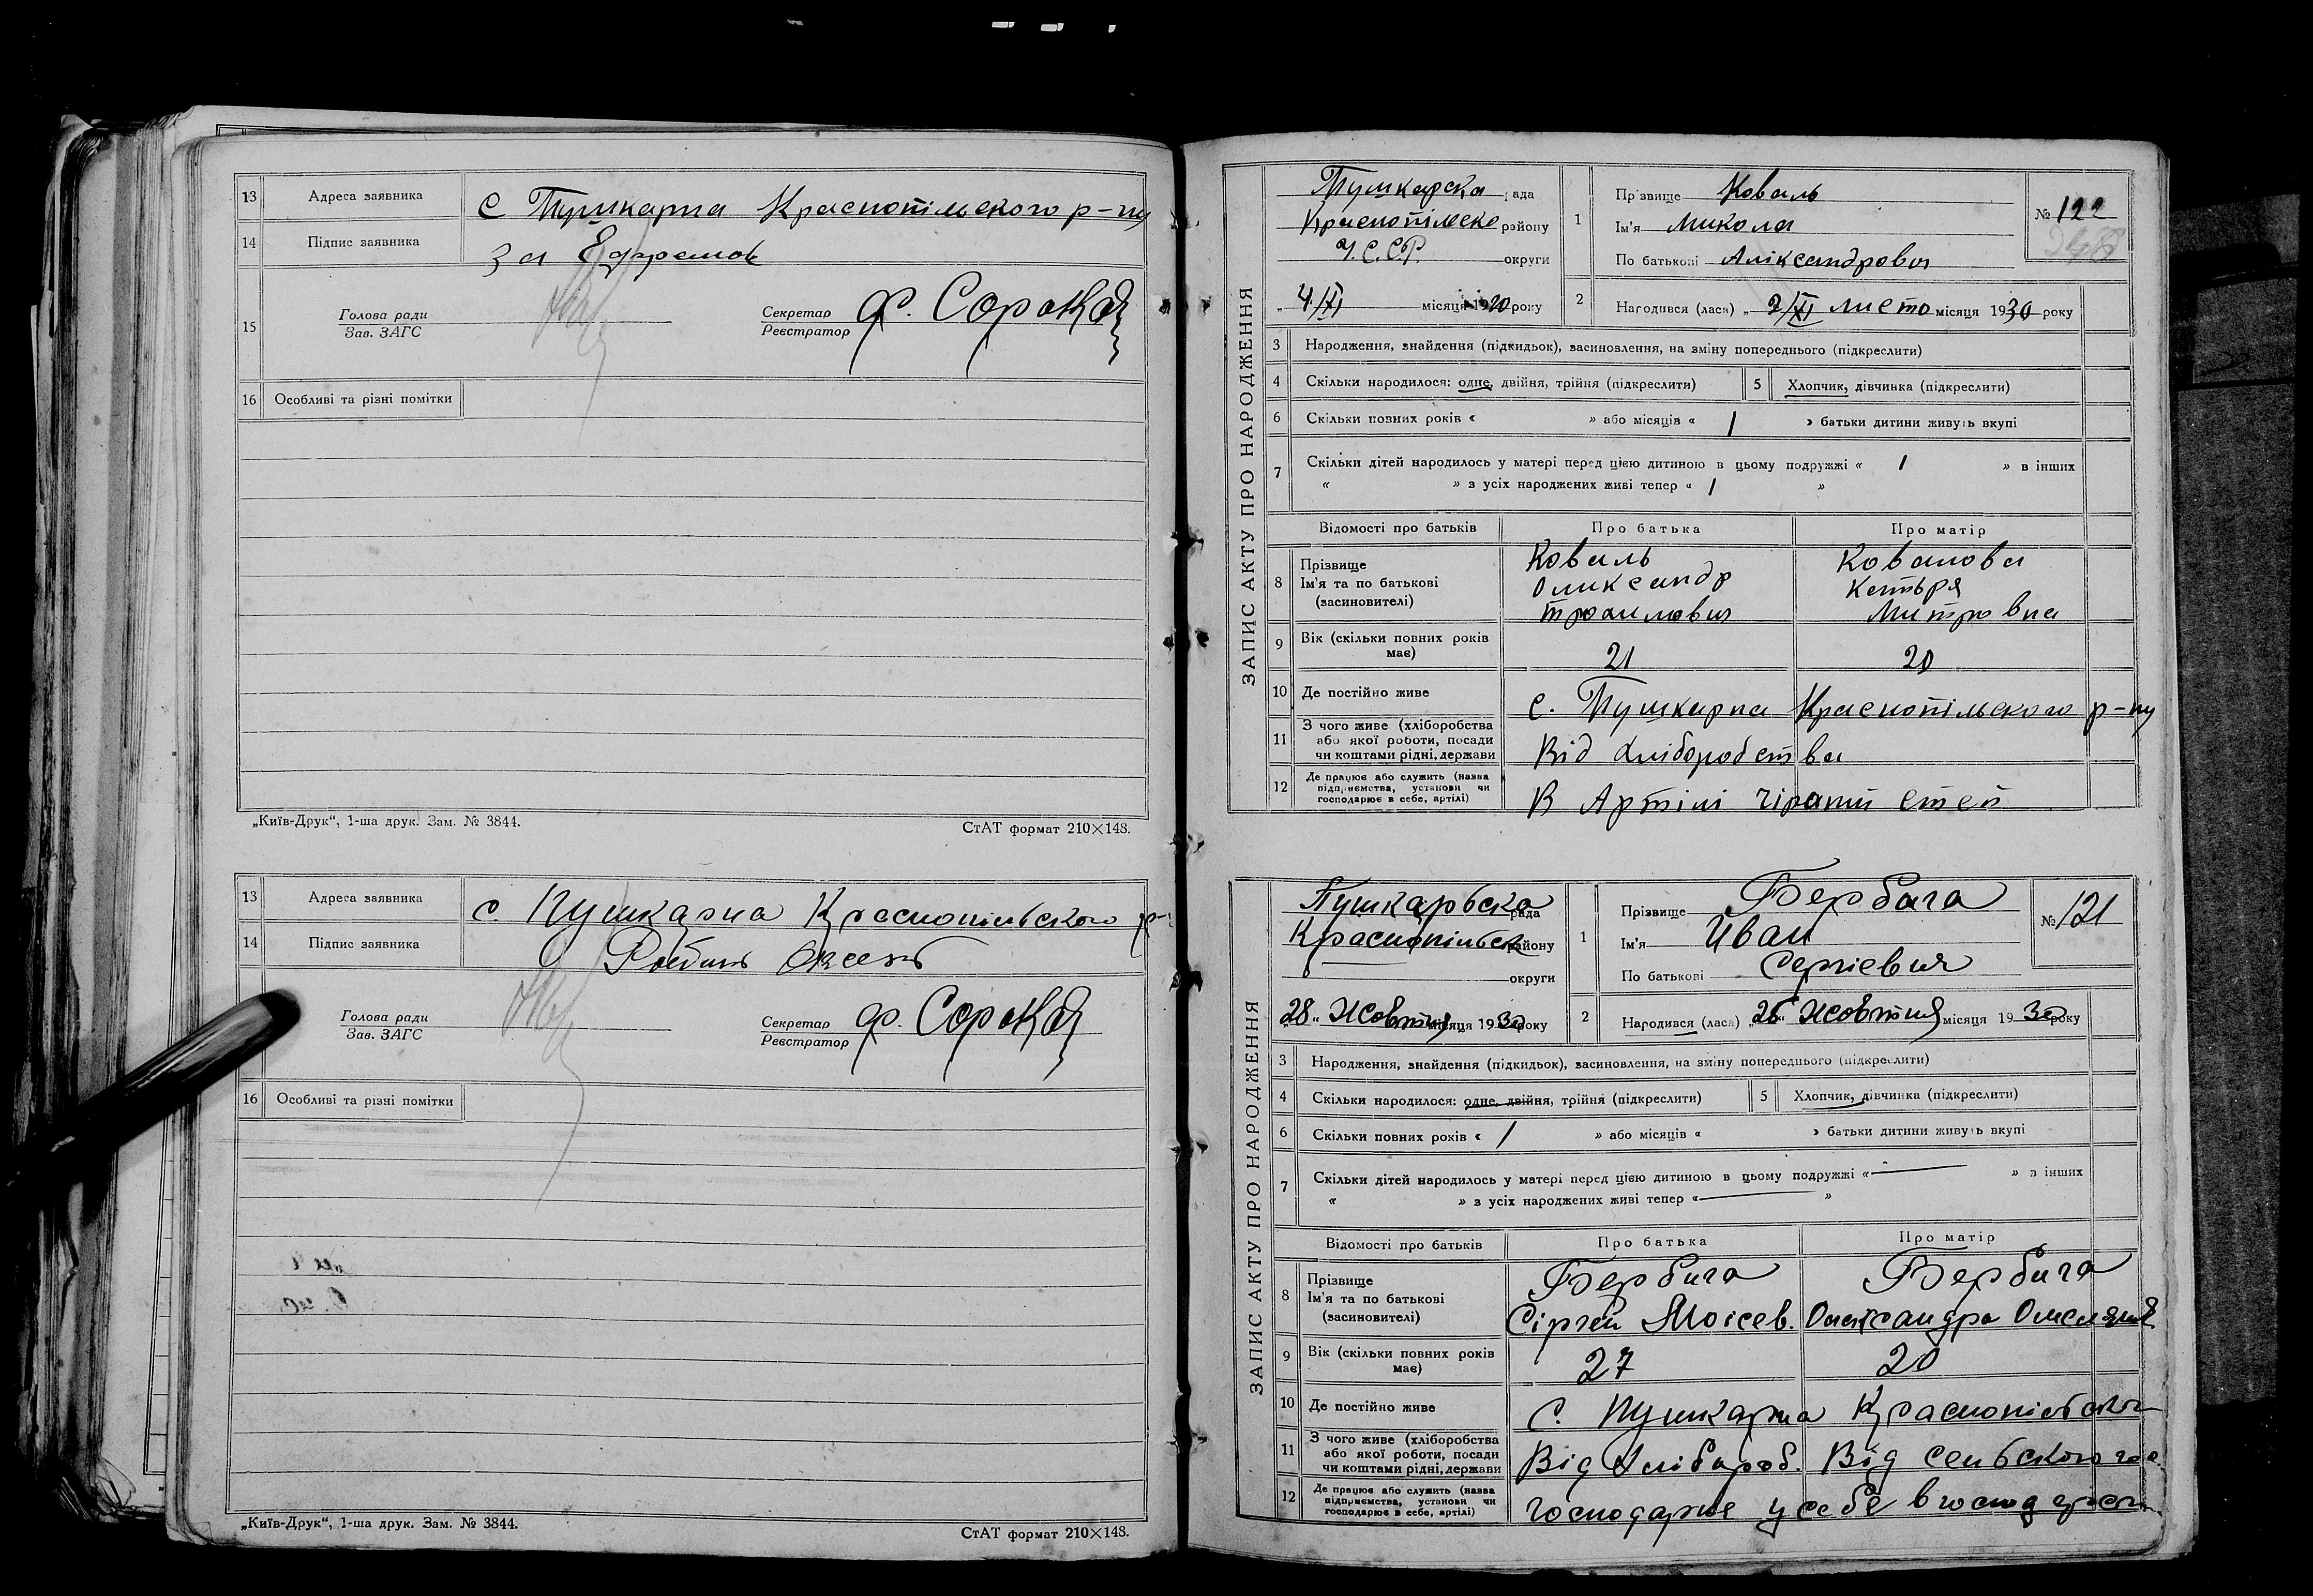 13 Адреса заявника с Пушкарна Краснопільского р-ну
14 Підпис заявника за Ефремов
15 Голова ради
Зав. ЗАГС
Секретар
Реєстратор Ф. Сорока
16 Особливі та різні помітки
„Київ-Друк“, 1-ша друк. Зам. № 3844. СтАТ формат 210×148.
13 Адреса заявника с. Пушкарна Краснопільского р-
14 Підпис заявника
15 Голова ради
Зав. ЗАГС
Секретар
Реєстратор Ф. Сорока
16 Особливі та різні помітки
„Київ-Друк“, 1-ша друк. Зам. № 3844. СтАТ формат 210×148.
ЗАПИС АКТУ ПРО НАРОДЖЕННЯ
Пушкарска рада
Краснопілско району
У.С.С.Р. округи
„ 4/XI місяця 1930 року
1 Прізвище Коваль
Ім'я Микола
По батькові Аліксандрович
№ 122
2 Народився (лася) „ 2/XI листо місяця 1930 року
3 Народження, знайдення (підкидьок), засиновлення, на зміну попереднього (підкреслити)
4 Скільки народилося: одне, двійня, трійня (підкреслити) 5 Хлопчик, дівчинка (підкреслити)
6 Скільки повних років « » або місяців « 1 » батьки дитини живуть вкупі
7 Скільки дітей народилось у матері перед цією дитиною в цьому подружжі « 1 » в інших
« » з усіх народжених живі тепер « 1 »
Відомості про батьків Про батька Про матір
8 Прізвище Коваль Ковальова
Ім'я та по батькові Оликсандр Катъря
(засновителі) Трохимович Митровна
9 Вік (скільки повних років має) 21 20
10 Де постійно живе с. Пушкарна Краснопільского р-ну
11 З чого живе (хліборобства або якої роботи, посади чи коштами рідні, держави Від хліборобства
12 Де працює або служить (назва підприємства, установи чи господарює в себе, артілі) В Артілі
ЗАПИС АКТУ ПРО НАРОДЖЕННЯ
Пушкарьска рада
Краснопільск району
округи
„28“ Жовтня місяця 1930 року
1 Прізвище Вербига
Ім'я Иван
По батькові Сергієвич
№ 121
2 Народився (лася) „26“ Жовтня місяця 1930 року
3 Народження, знайдення (підкидьок), засиновлення, на зміну попереднього (підкреслити)
4 Скільки народилося: одне, двійня, трійня (підкреслити) 5 Хлопчик, дівчинка (підкреслити)
6 Скільки повних років « 1 » або місяців « » батьки дитини живуть вкупі
7 Скільки дітей народилось у матері перед цією дитиною в цьому подружжі « — » з інших
« » з усіх народжених живі тепер « — »
Відомості про батьків Про батька Про матір
8 Прізвище Вербига Вербига
Ім'я та по батькові
(засновителі) Сіргей Моісев. Олександра
9 Вік (скільки повних років має) 27 20
10 Де постійно живе с. Пушкарна
11 З чого живе (хліборобства або якої роботи, посади чи коштами рідні, держави Від хлібороб. Від сельского гос.
12 Де працює або служить (назва підприємства, установи чи господарює в себе, артілі) господарює у себе в